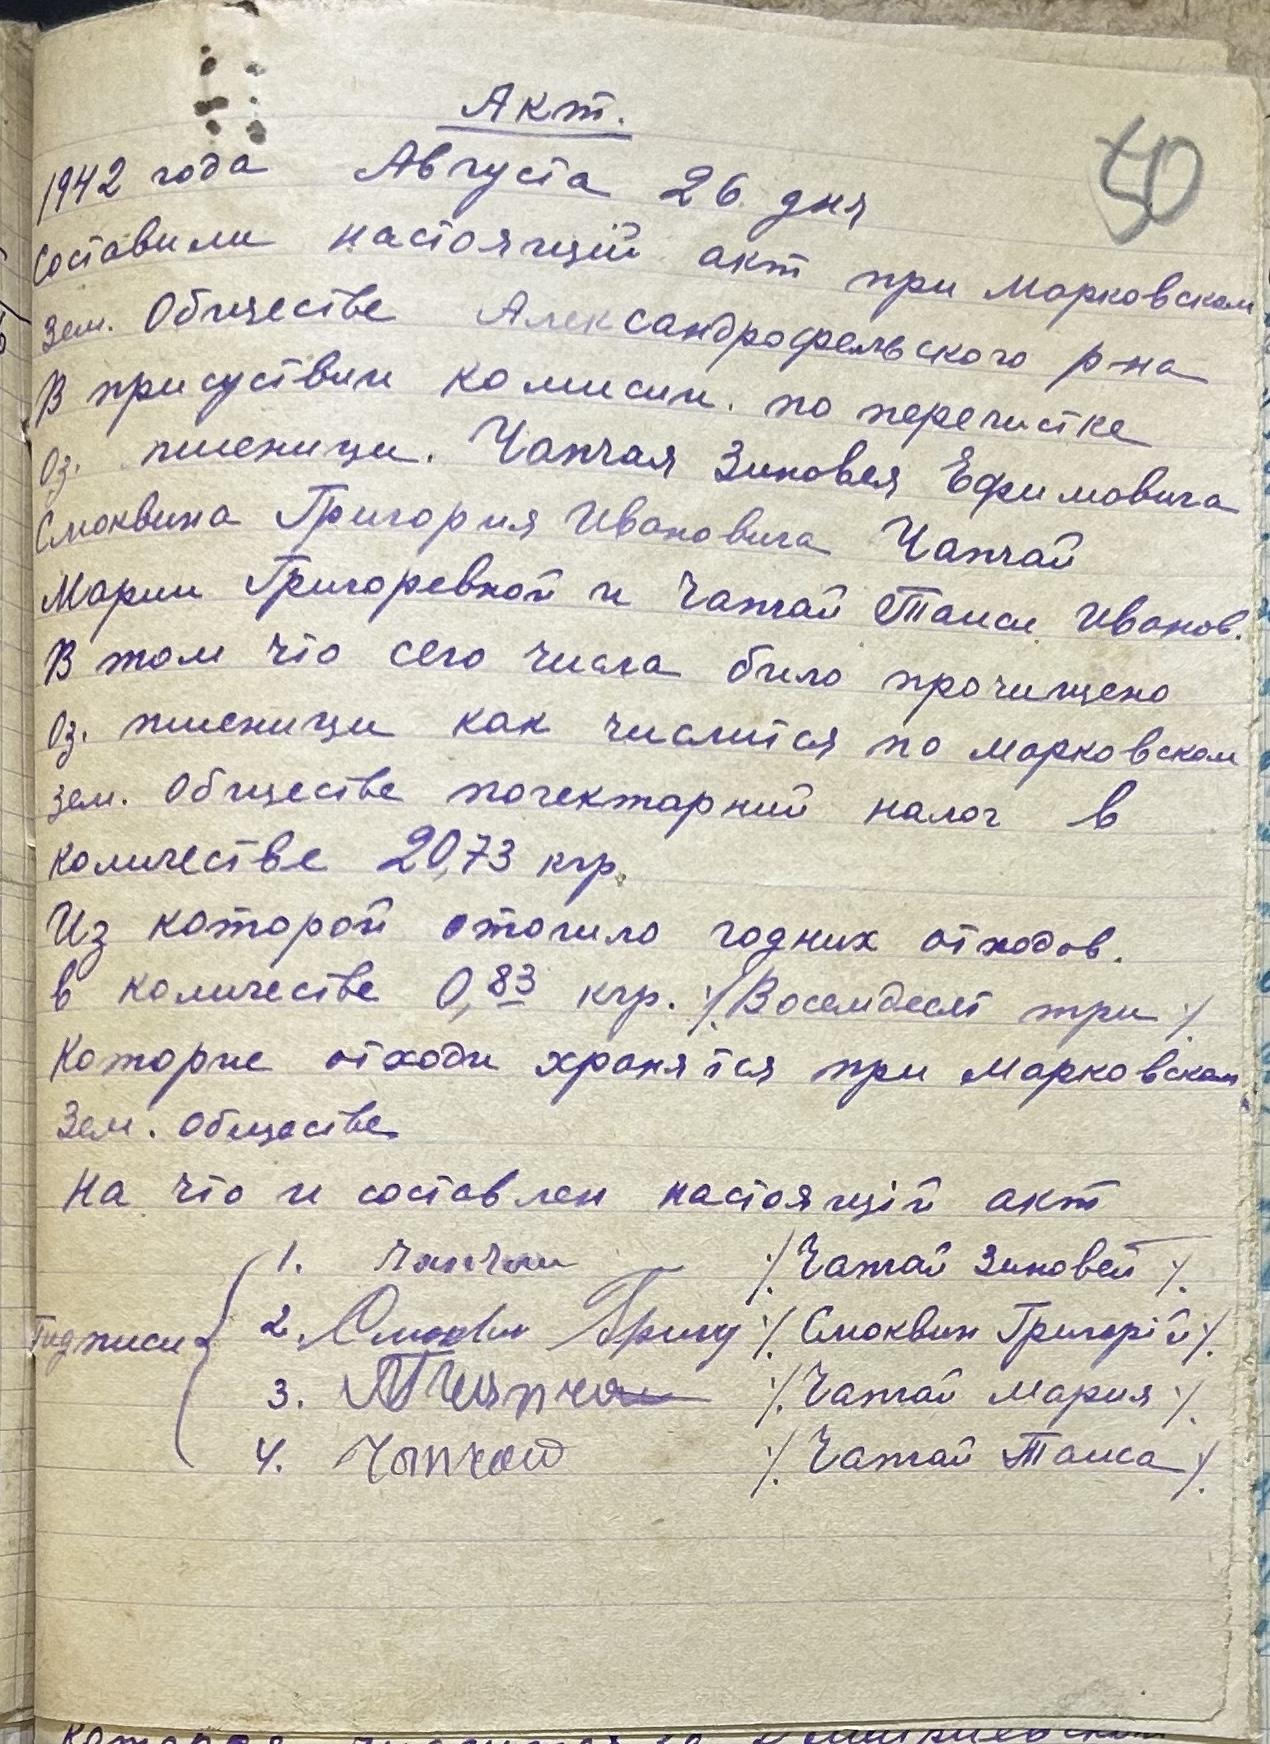 Акт.
50
1942 года Августа 26 дня
Составили настоящий акт при Марковском
Зем. Обществе Александрофельского р-на
В присуствии комисии. по перечистке
Оз. пшеници. Чапчая Зиновея Ефимовича
Смоквина Григория Ивановича Чапчай
Марии Григоревной и Чапчай Таиси Иванов.
В том что сего числа било прочищено
Оз. пшеници как числится по Марковском
зем. Обществе погектарний налог в
количестве 20,73 кгр.
Из которой отогило годних отходов.
в количестве 0,83 кгр. ./.Восемдесят три./.
Которие отходи хранятся при Марковском
Зем. Обществе
На что и составлен настоящій акт
Подписи
1. Чапчай ./.Чапчай Зиновей./.
2. Смоквин Григ ./.Смоквин Григорій./.
3. ./.Чапчай Мария./.
4. Чапчай ./.Чапчай Таиса./.
Которая